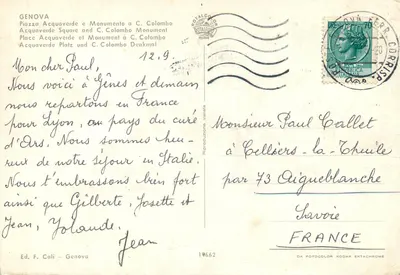 GENOVA
Piazza Acquaverde e Monumento a C. Colombo
Acquaverde Square and C. Colombo Monument
Place Acquaverde et Monument à C. Colombo
Acquaverde Platz und C. Colombo Denkmal
12.9.
Mon cher Paul,
Nous voici à Gênes et demain
nous repartons en France
pour Lyon, au pays du curé
d'Ars. Nous sommes heu-
reux de notre séjour en Italie.
Nous t'embrassons bien fort
ainsi que Gilberte, Josette et
Jean, Yolande.
Jean
Ed. F. Cali - Genova
GENOVA FERR. CORRISP.
Monsieur Paul Callet
à Celliers-la-Thuile
par 73 Aigueblanche
Savoie
FRANCE
19662